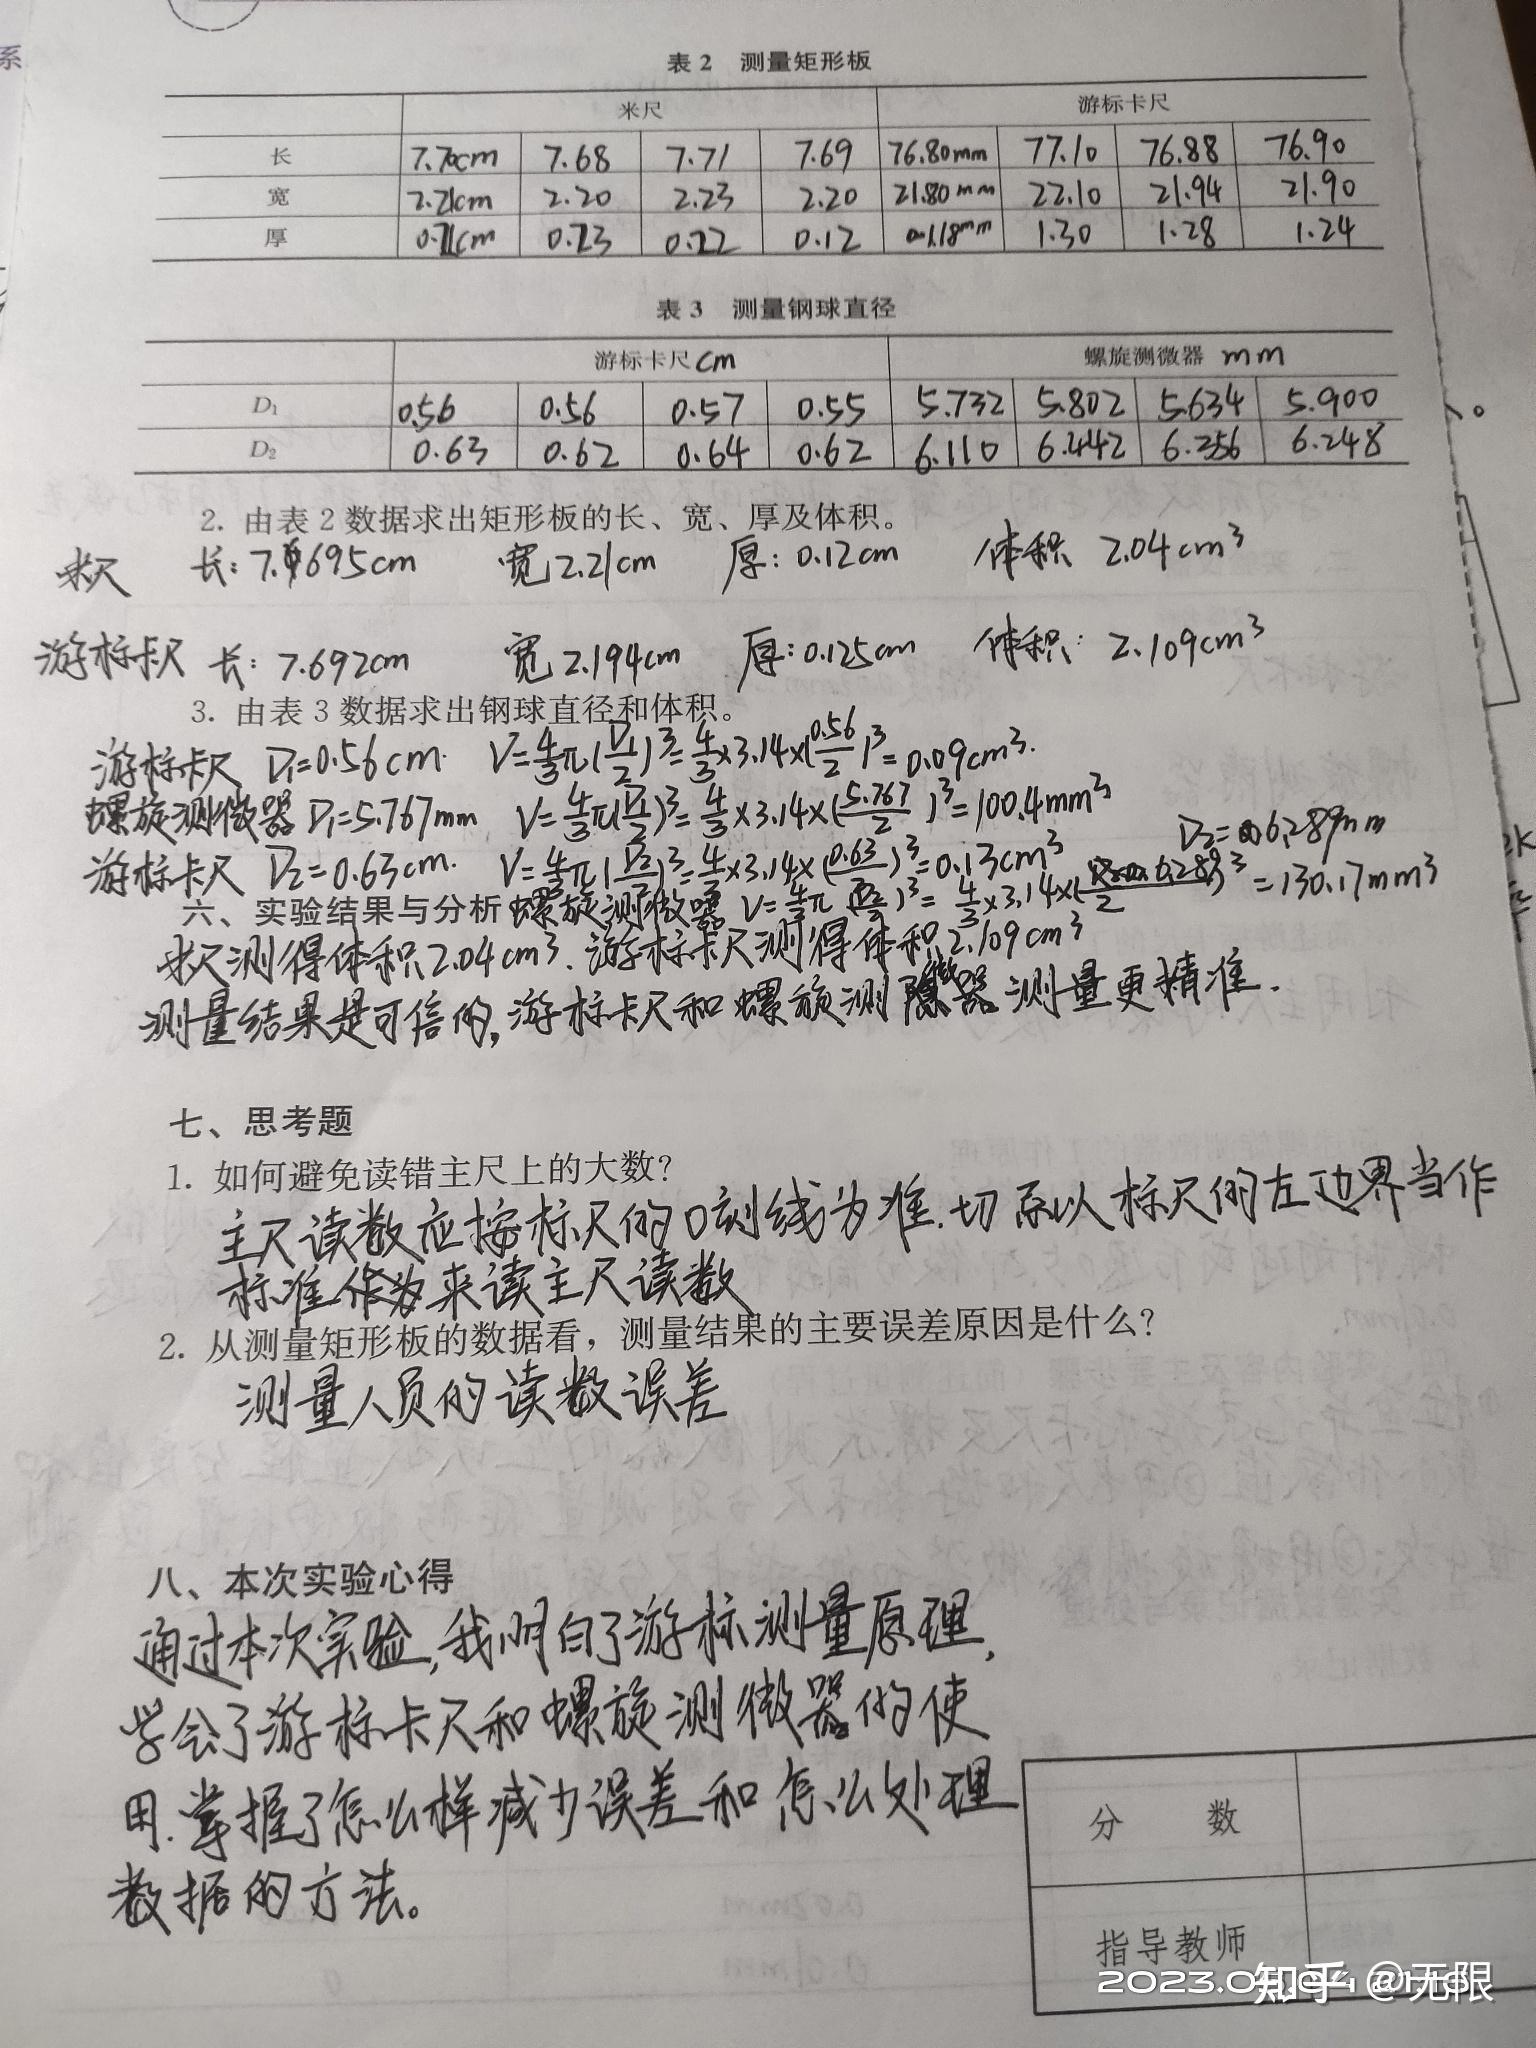 系
表 2 测量矩形板
米尺 游标卡尺
长 7.70cm 7.68 7.71 7.69 76.80mm 77.10 76.88 76.90
宽 2.21cm 2.20 2.23 2.20 21.80mm 22.10 21.94 21.90
厚 0.13 0.12 0.12 1.18mm 1.30 1.28 1.24
表 3 测量钢球直径
游标卡尺 cm 螺旋测微器 mm
D₁ 0.56 0.56 0.57 0.55 5.732 5.802 5.634 5.900
D₂ 0.63 0.62 0.64 0.62 6.110 6.442 6.356 6.248
2. 由表 2 数据求出矩形板的长、宽、厚及体积。
米尺 长: 7.695cm 宽 2.21cm 厚: 0.12cm 体积 2.04cm³
游标卡尺 长: 7.692cm 宽 2.194cm 厚: 0.125cm 体积: 2.109cm³
3. 由表 3 数据求出钢球直径和体积。
游标卡尺 D₁=0.56cm. V=4/3π(D₁/2)³=4/3×3.14×(0.56/2)³=0.09cm³.
螺旋测微器 D₁=5.767mm V=4/3π(D₁/2)³=4/3×3.14×(5.767/2)³=100.4mm³
D₂=6.289mm
游标卡尺 D₂=0.63cm. V=4/3π(D₂/2)³=4/3×3.14×(0.63/2)³=0.13cm³
六、实验结果与分析 螺旋测微器 V=4/3π(D₂/2)³=4/3×3.14×(6.289/2)³=130.17mm³
米尺测得体积2.04cm³.游标卡尺测得体积2.109cm³
测量结果是可信的,游标卡尺和螺旋测微器测量更精准.
七、思考题
1. 如何避免读错主尺上的大数?
主尺读数应按标尺的0刻线为准.切忌以标尺的左边界当作
标准 来读主尺读数
2. 从测量矩形板的数据看，测量结果的主要误差原因是什么?
测量人员的读数误差
八、本次实验心得
通过本次实验,我明白了游标测量原理,
学会了游标卡尺和螺旋测微器的使
用.掌握了怎么样减少误差和怎么处理
数据的方法。
分 数
指导教师
知乎 @无限